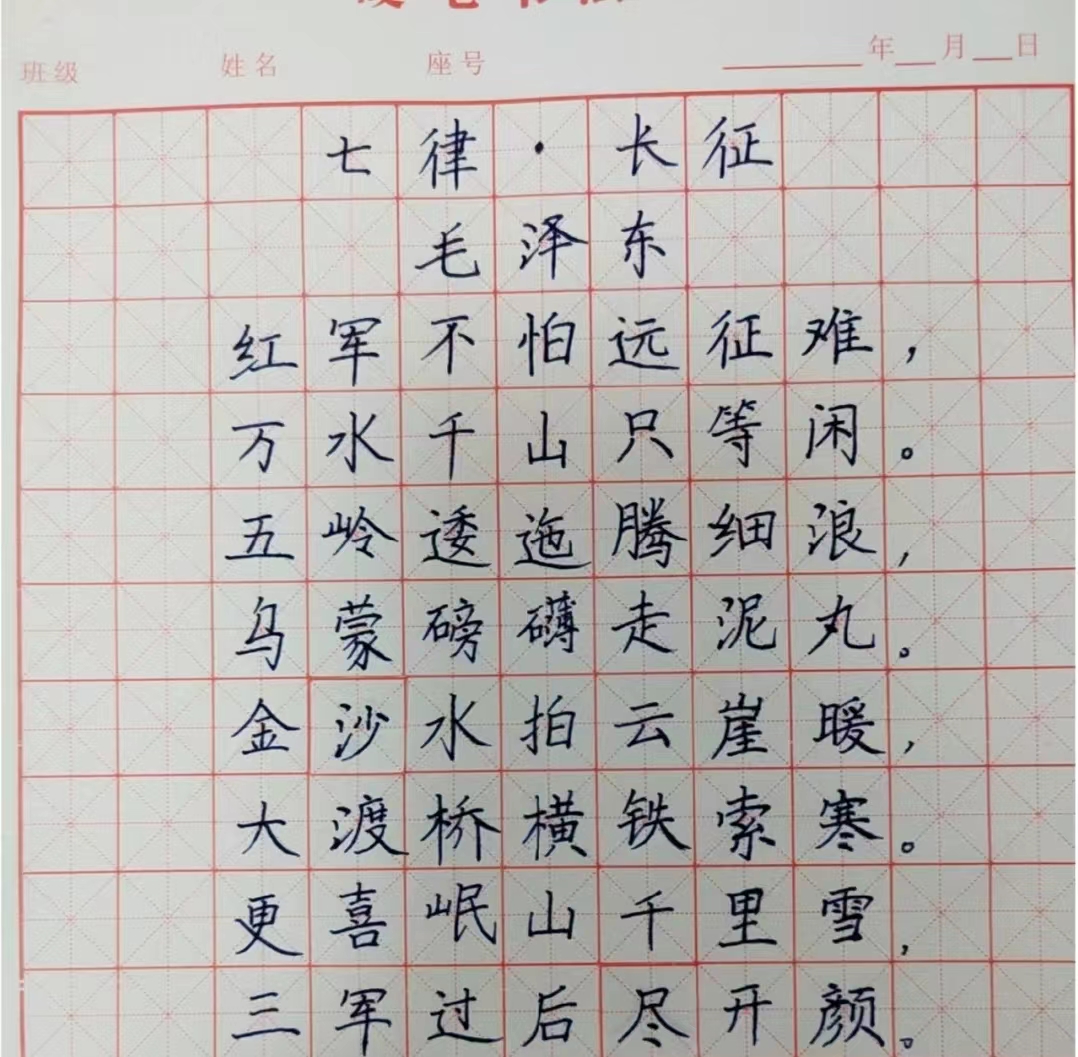 班级 姓名 座号 年 月 日
七律·长征
毛泽东
红军不怕远征难，
万水千山只等闲。
五岭逶迤腾细浪，
乌蒙磅礴走泥丸。
金沙水拍云崖暖，
大渡桥横铁索寒。
更喜岷山千里雪，
三军过后尽开颜。